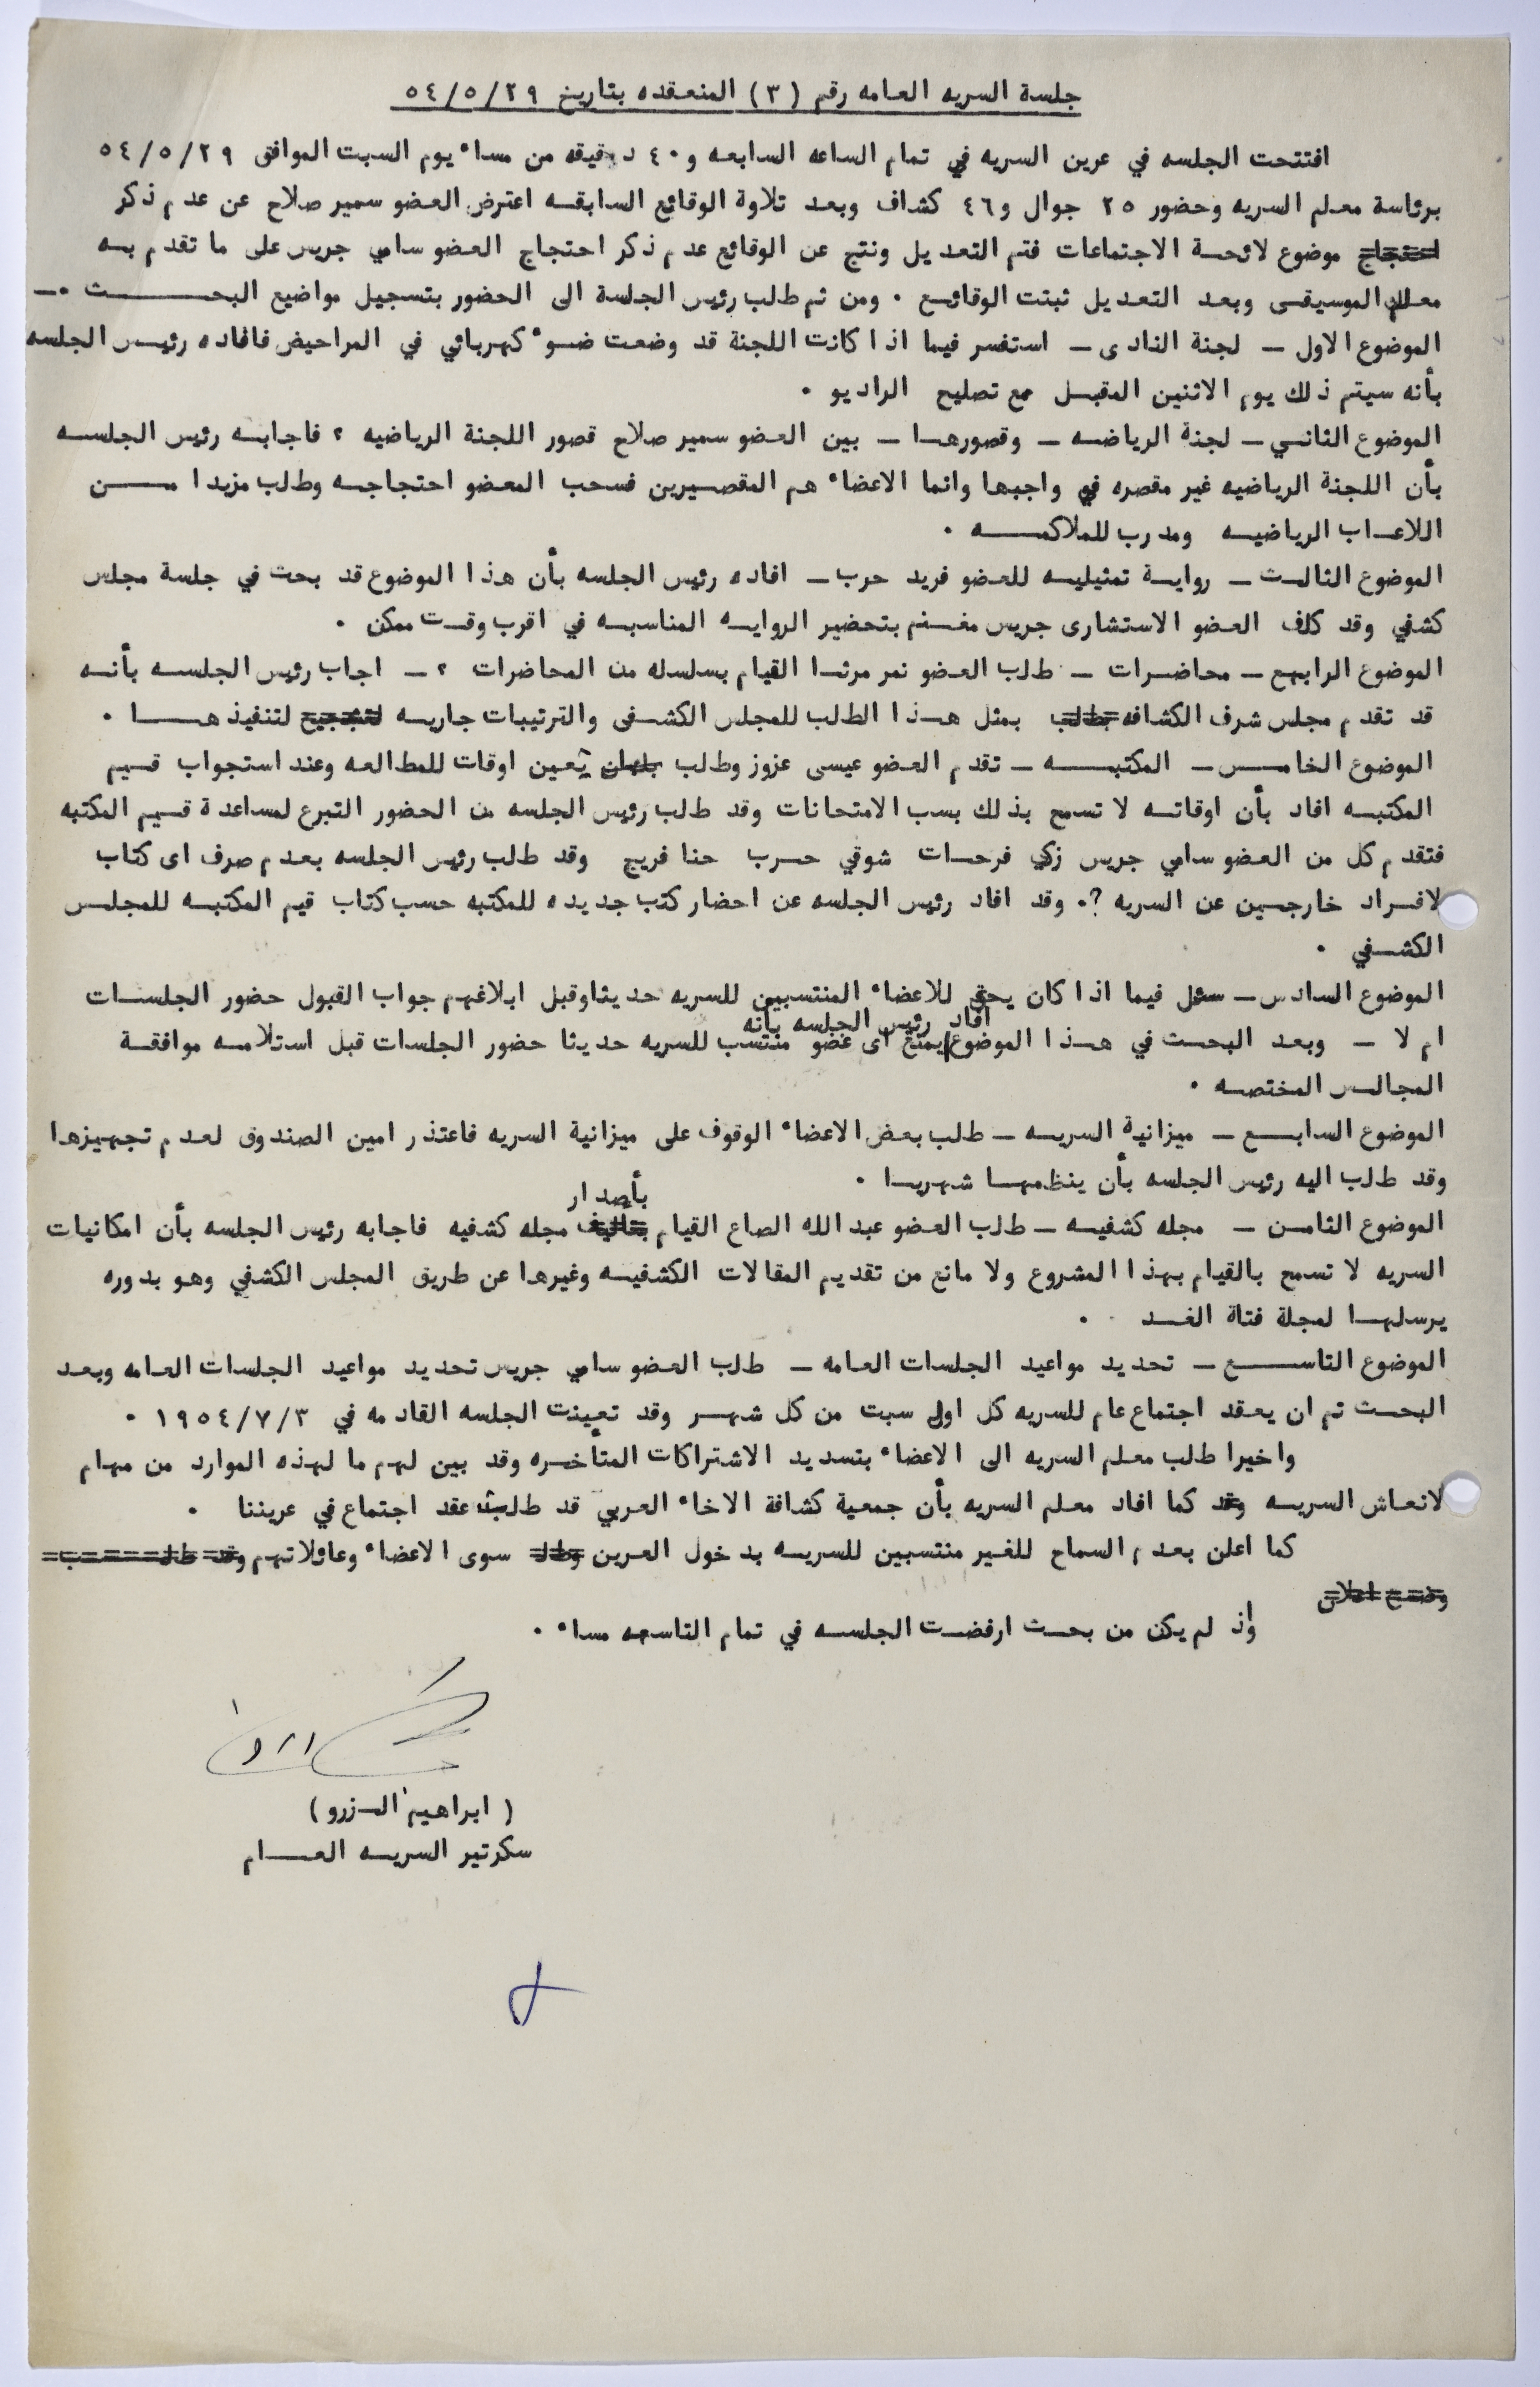 جلسة السريه العامه رقم (٣) المنعقده بتاريخ ٥٤/٥/٢٩
افتتحت الجلسه في عرين السريه في تمام الساعه السابعه و٤٠ دقيقه من مساء يوم السبت الموافق ٥٤/٥/٢٩
برئاسة معلم السريه وحضور ٢٥ جوال و٤٦ كشاف وبعد تلاوة الوقائع السابقه اعترض العضو سمير صلاح عن عدم ذكر
احتجاج موضوع لائحة الاجتماعات فتم التعديل ونتج عن الوقائع عدم ذكر احتجاج العضو سامي جريس على ما تقدم به
معلم الموسيقى وبعد التعديل ثبتت الوقائع ٠ ومن ثم طلب رئيس الجلسة الى الحضور بتسجيل مواضيع البحث ٠ــ
الموضوع الاول ــ لجنة النادى ــ استفسر فيما اذا كانت اللجنة قد وضعت ضوء كهربائي في المراحيض فافاده رئيس الجلسه
بأنه سيتم ذلك يوم الاثنين المقبل مع تصليح الراديو ٠
الموضوع الثاني ــ لجنة الرياضه ــ وقصورها ــ بين العضو سمير صلاح قصور اللجنة الرياضيه ٢ فاجابه رئيس الجلسه
بأن اللجنة الرياضيه غير مقصره في واجبها وانما الاعضاء هم المقصيرين فسحب المعضو احتجاجه وطلب مزيدا من
اللاعاب الرياضيه ومدرب للملاكمه ٠
الموضوع الثالث ــ رواية تمثيليه للعضو فريد حرب ــ افاده رئيس الجلسه بأن هذا الموضوع قد بحث في جلسة مجلس
كشفي وقد كلف العضو الاستشارى جريس مغنم بتحضير الروايه المناسبه في اقرب وقت ممكن ٠
الموضوع الرابع ــ محاضرات ــ طلب العضو نمر مرثا القيام بسلسله من المحاضرات ٢ ــ اجاب رئيس الجلسه بأنه
قد تقدم مجلس شرف الكشافه بطلب بمثل هذا الطلب للمجلس الكشفى والترتيبات جاريه لتشجيع لتنفيذها ٠
الموضوع الخامس ــ المكتبه ــ تقدم العضو عيسى عزوز وطلب تعين اوقات للمطالعه وعند استجواب قيم
المكتبه افاد بأن اوقاته لا تسمح بذلك بسب الامتحانات وقد طلب رئيس الجلسه من الحضور التبرع لمساعدة قيم المكتبه
فتقدم كل من العضو سامي جريس زكي فرحات شوقي حرب حنا فريج وقد طلب رئيس الجلسه بعدم صرف اى كتاب
لافراد خارجين عن السريه ?٠ وقد افاد رئيس الجلسه عن احضار كتب جديده للمكتبه حسب كتاب قيم المكتبه للمجلس
الكشفي ٠
الموضوع السادس ــ سئل فيما اذا كان يحق للاعضاء المنتسبين للسريه حديثا وقبل ابلاغهم جواب القبول حضور الجلسات
افاد رئيس الجلسه بأنه
ام لا ــ وبعد البحث في هذا الموضوع يمنع اى عضو منتسب للسريه حديثا حضور الجلسات قبل استلامه موافقة
المجالس المختصه ٠
الموضوع السابع ــ ميزانية السريه ــ طلب بعض الاعضاء الوقوف على ميزانية السريه فاعتذر امين الصندوق لعدم تجهيزها
وقد طلب اليه رئيس الجلسه بأن ينظمها شهريا ٠
بأصدار
الموضوع الثامن ــ مجله كشفيه ــ طلب العضو عبد الله الصاع القيام بتاليف مجله كشفيه فاجابه رئيس الجلسه بأن امكانيات
السريه لا تسمح بالقيام بهذا المشروع ولا مانع من تقديم المقالات الكشفيه وغيرها عن طريق المجلس الكشفي وهو بدوره
يرسلها لمجلة فتاة الغد ٠
الموضوع التاسع ــ تحديد مواعيد الجلسات العامه ــ طلب العضو سامي جريس تحديد مواعيد الجلسات العامه وبعد
البحث تم ان يعقد اجتماع عام للسريه كل اول سبت من كل شهر وقد تعينت الجلسه القادمه في ١٩٥٤/٧/٣ ٠
واخيرا طلب معلم السريه الى الاعضاء بتسديد الاشتراكات المتأخره وقد بين لهم ما لهذه الموارد من مهام
لانعاش السريه وقد كما افاد معلم السريه بأن جمعية كشافة الاخاء العربي قد طلبت عقد اجتماع في عريننا ٠
كما اعلن بعدم السماح للغير منتسبين للسريه بدخول العرين سوى الاعضاء وعائلاتهم وقد طلب
وضع اعلان
واذ لم يكن من بحث ارفضت الجلسه في تمام التاسعه مساء ٠
(ابراهيم الزرو)
سكرتير السريه العام